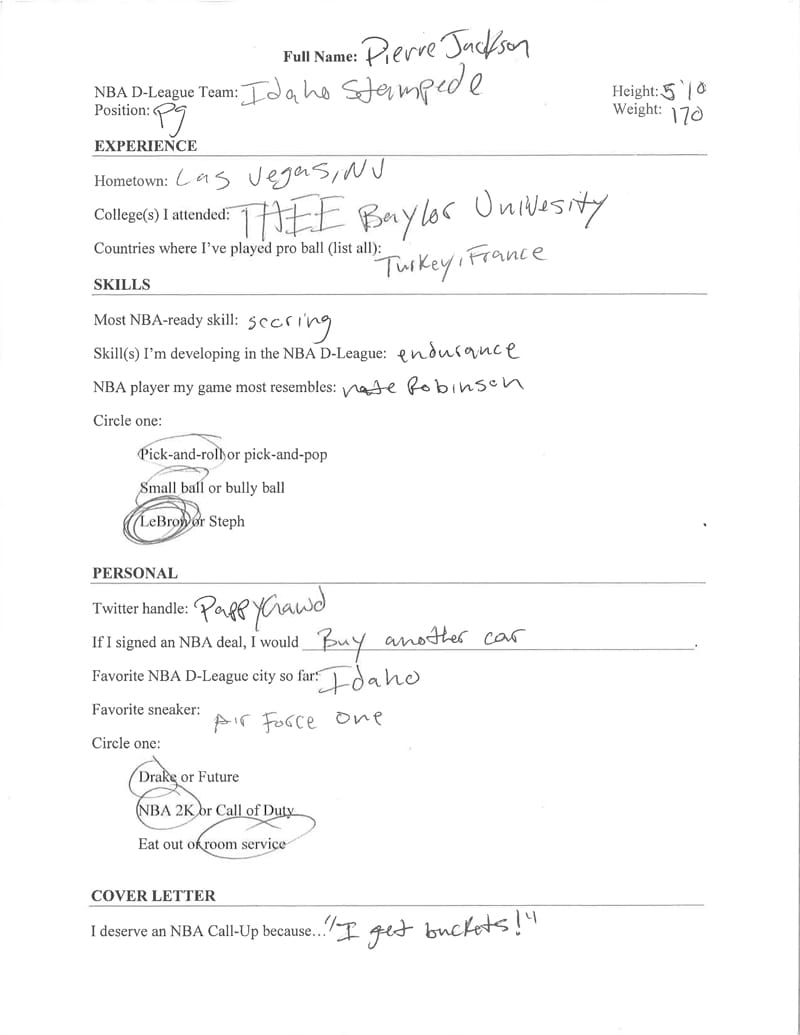 Full Name: Pierre Jackson
NBA D-League Team: Idaho Stampede Height: 5'10
Position: Pg Weight: 170
EXPERIENCE
Hometown: Las Vegas, NV
College(s) I attended: THEE Baylor Univesity
Countries where I've played pro ball (list all): Turkey, France
SKILLS
Most NBA-ready skill: scoring
Skill(s) I'm developing in the NBA D-League: endurance
NBA player my game most resembles: nate Robinson
Circle one:
Pick-and-roll or pick-and-pop
Small ball or bully ball
LeBron or Steph
PERSONAL
Twitter handle: PappyCrawd
If I signed an NBA deal, I would Buy another car.
Favorite NBA D-League city so far: Idaho
Favorite sneaker: Air Force One
Circle one:
Drake or Future
NBA 2K or Call of Duty
Eat out or room service
COVER LETTER
I deserve an NBA Call-Up because... "I get buckets!"